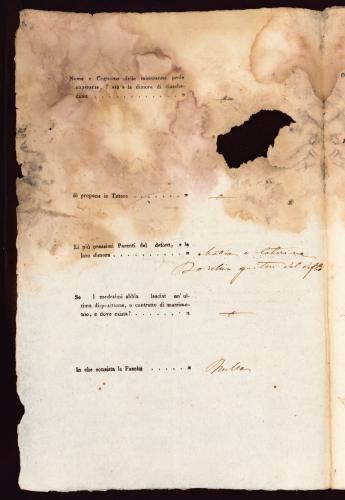 Nome e Cognome della minorenne prole
superstite, l' età e la dimora di ciasche-
duno . . . . . . . . . . „
Si propone in Tutore . . . . . . . „
Li più prossimi Parenti del defont., e la
loro dimora . . . . . . . . „ Mattia e
genitori del
Se i medesimi abbia lasciat un' ul-
tima disposizione, o contratto di matrimo-
nio, e dove esista? . . . . . . . „
In che consista la Facoltà . . . . . „ Nulla